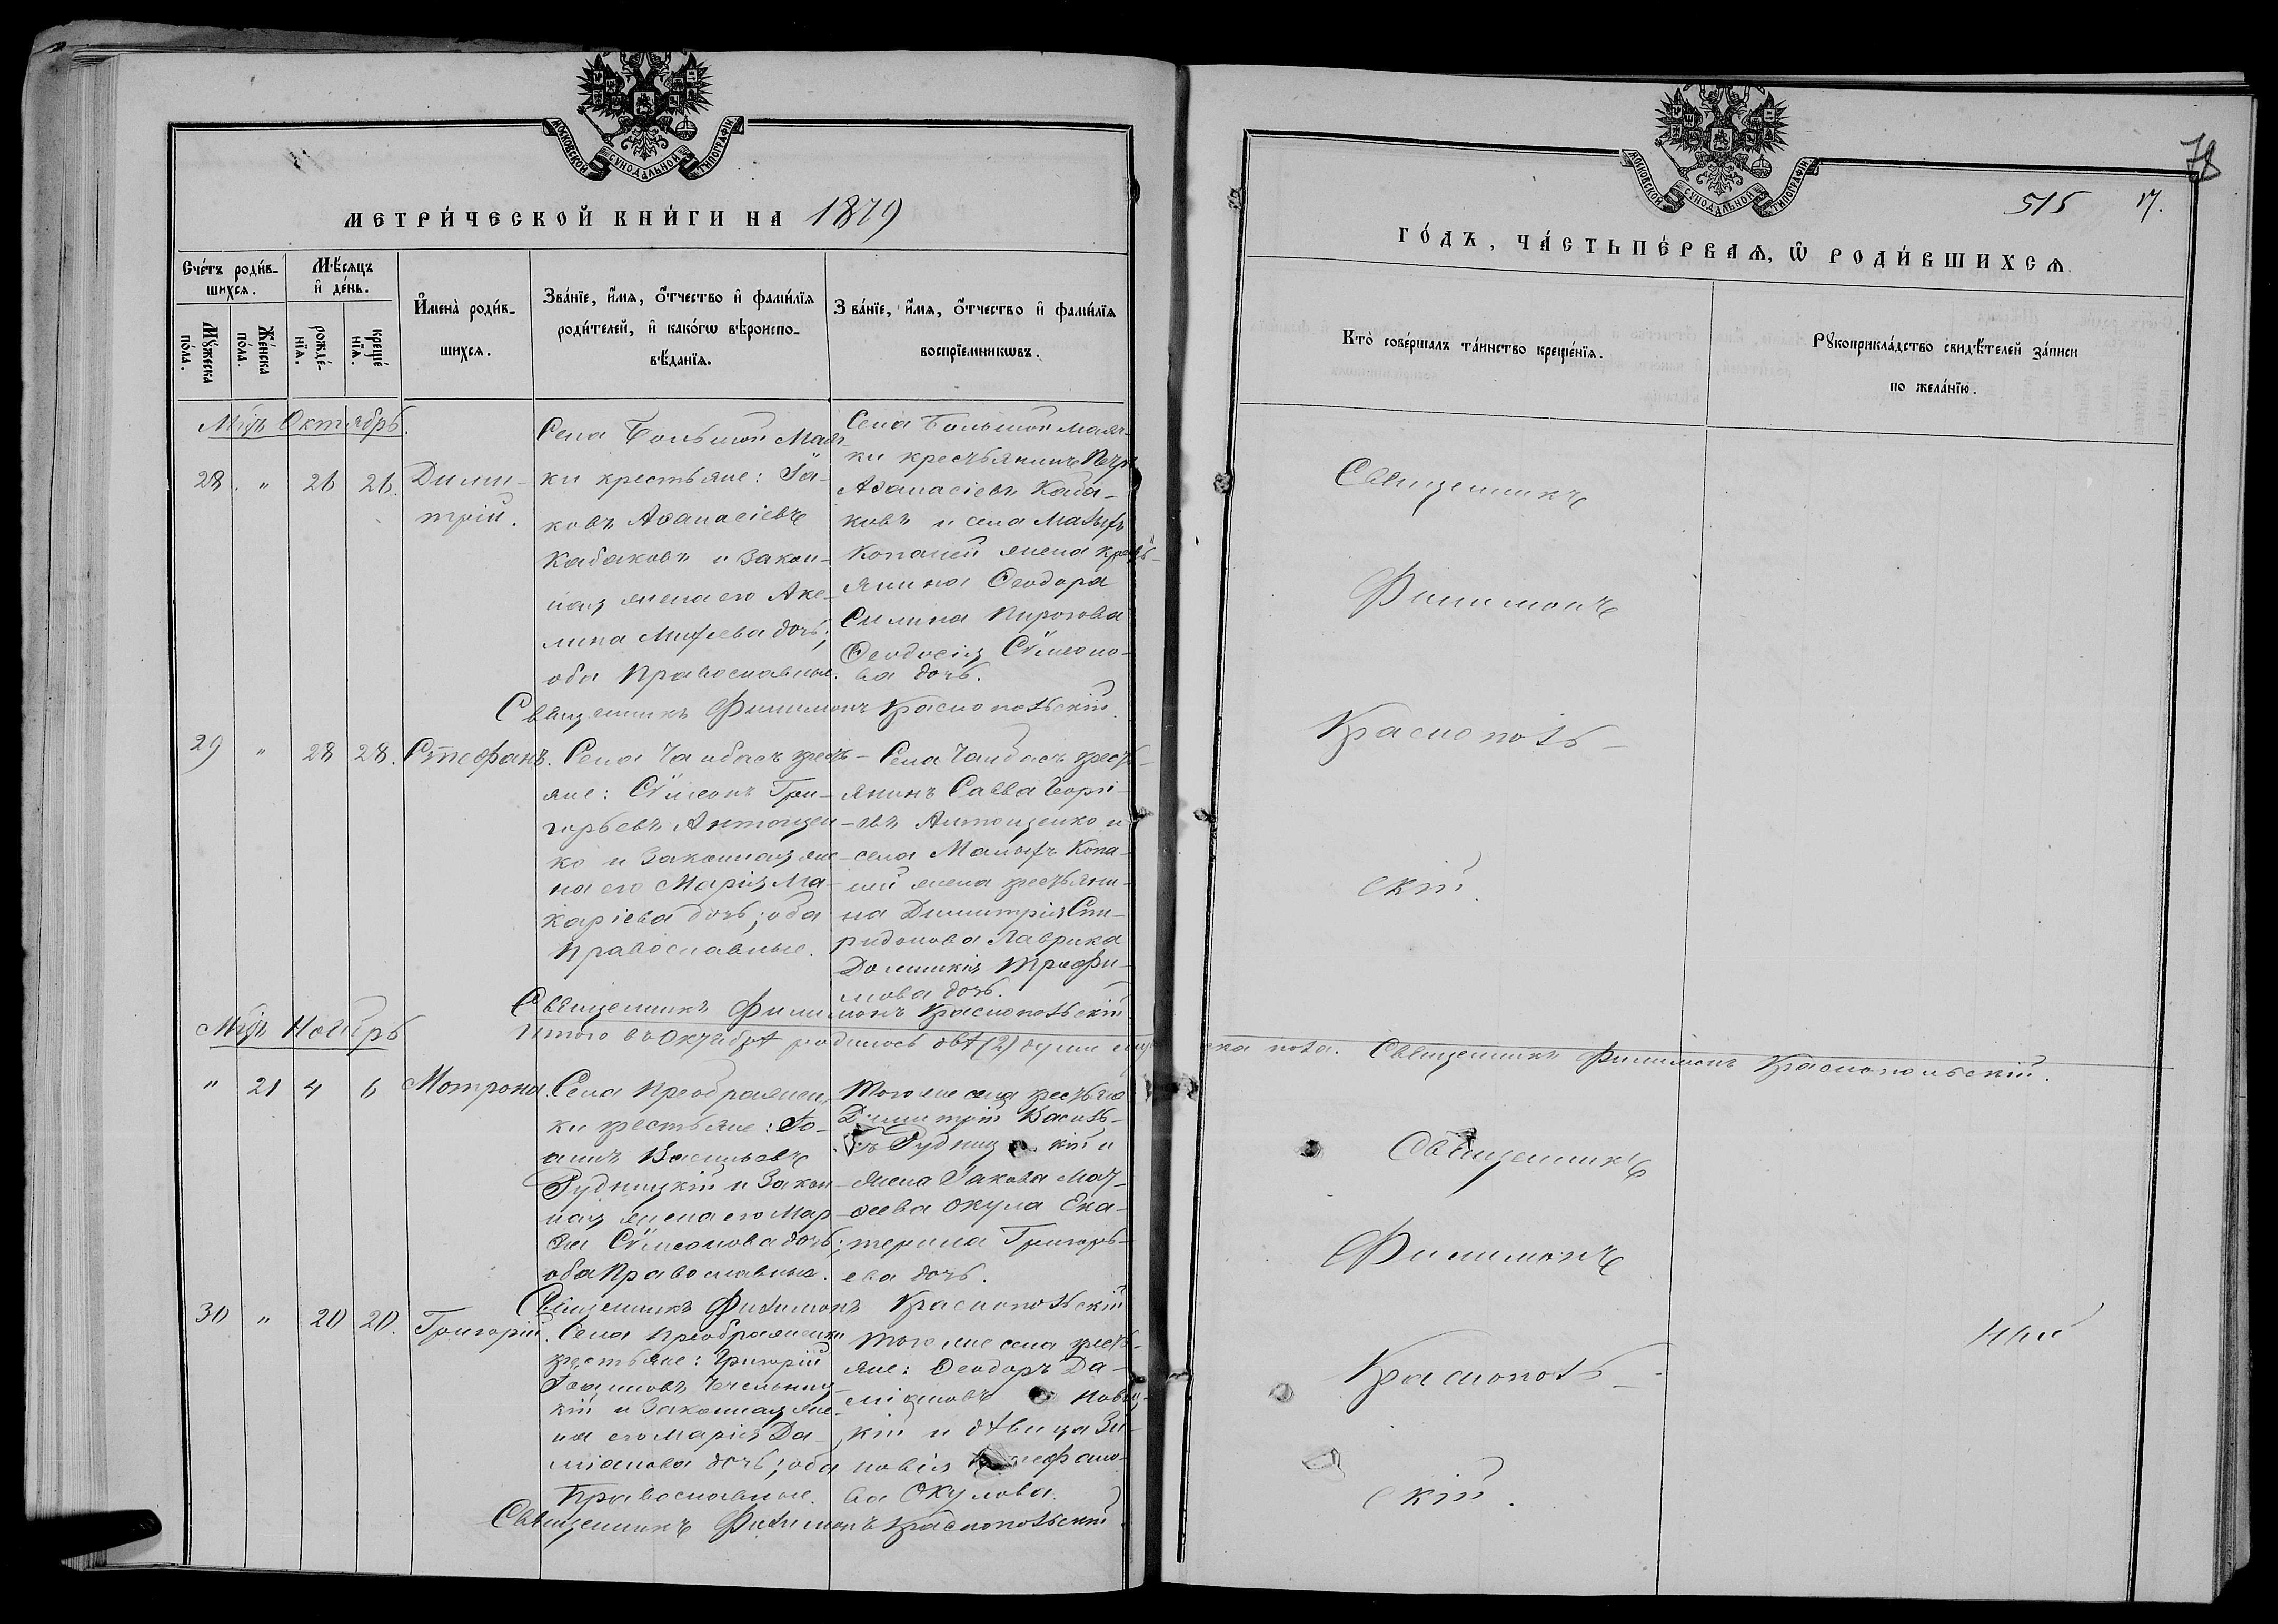 МОСКОВСКОЙ СѴНОДАЛЬНОЙ ТИПОГРАФІИ
МЕТРИ́ЧЕСКОЙ КНИ́ГИ НА 1879
Сче́тъ роди́в-
шихсѧ.
Мѣ́сѧцъ
и҆ де́нь.
И҆мена̀ роди́в-
шихсѧ.
Зва́нїе, и҆́мѧ, ѻ҆́тчество и҆ фами́лїѧ
роди́телей, и҆ како́гѡ вѣроиспо-
вѣ́данїѧ.
Зва́нїе, и҆́мѧ, ѻ҆́тчество и҆ фами́лїѧ
воспрїе́мникѡвъ.
Мꙋ́жеска
по́ла.
Же́нска
по́ла.
рожде́-
нїѧ.
креще́
нїѧ.
Мцъ Октябрь.
28. " 26 26. Дими-
трій.
Села Большой Маяч-
ки крестьяне: Іа-
ковъ Аѳанасіевъ
Кабаковъ и закон-
ная жена его Аке-
лина Михеева дочь;
оба Православные.
Села Большой Маяч-
ки крестьянинъ Петръ
Аѳанасіевъ Каба-
ковъ и села Малыхъ
Копаней жена кресть-
янина Ѳеодора
Силина Пирогова
Ѳеодосія Сѵмеоно-
ва дочь.
Священникъ Филимонъ Краснопольскій.
29 " 28 28. Стефанъ.
Села Чалбасъ кресть-
яне: Сѵмеонъ Гри-
горьевъ Антоцен-
ко и законная же-
на его Марія Ма-
каріева дочь; оба
православные.
Села Чалбасъ кресть-
янинъ Савва Гори-
евъ Антоценко и
села Малыхъ Копа-
ней жена крестьяни-
на Димитрія Спи-
ридонова Лаврика
Домникія Трофи-
мова дочь.
Священникъ Филимонъ Краснопольскій
Итого въ Октябрѣ родилось двѣ (2) души мужеска пола. Священникъ Филимонъ Краснопольскій.
Мцъ Ноябрь
" 21 4 6 Мотрона.
Села Преображен-
ки крестьяне: Іо-
аннъ Васильевъ
Рудницкій и Закон-
ная жена его Мар-
ѳа Сѵмеонова дочь;
оба Православные.
Того же села крестьяне
Димитрій Василь-
евъ Рудницкій и
жена Іакова Мат-
ѳеева Окула Ека-
терина Григорь-
ева дочь.
Священникъ Филимонъ Краснопольскій
30 " 20 20. Григорій.
Села Преображенки
крестьяне: Григорій
Іоанновъ
кій и Законная же-
на его Марія Да-
міанова дочь; оба
Православные.
Того же села кресть-
яне: Ѳеодоръ Да-
міановъ
кій и дѣвица Зи-
новія Стефано-
ва Окулова.
Священникъ Филимонъ Краснопольскій
МОСКОВСКОЙ СѴНОДАЛЬНОЙ ТИПОГРАФІИ
78
515 17.
ГО́ДЪ, ЧА́СТЬ ПЕ́РВАѦ, Ѡ҆ РОДИ́ВШИХСѦ.
Кто̀ соверша́лъ та́инство креще́нїѧ.
Рꙋкоприкла́дство свидѣ́телей за́писи
по жела́нїю.
Священникъ
Филимонъ
Краснополь-
скій.
Священникъ
Филимонъ
Краснополь-
скій.